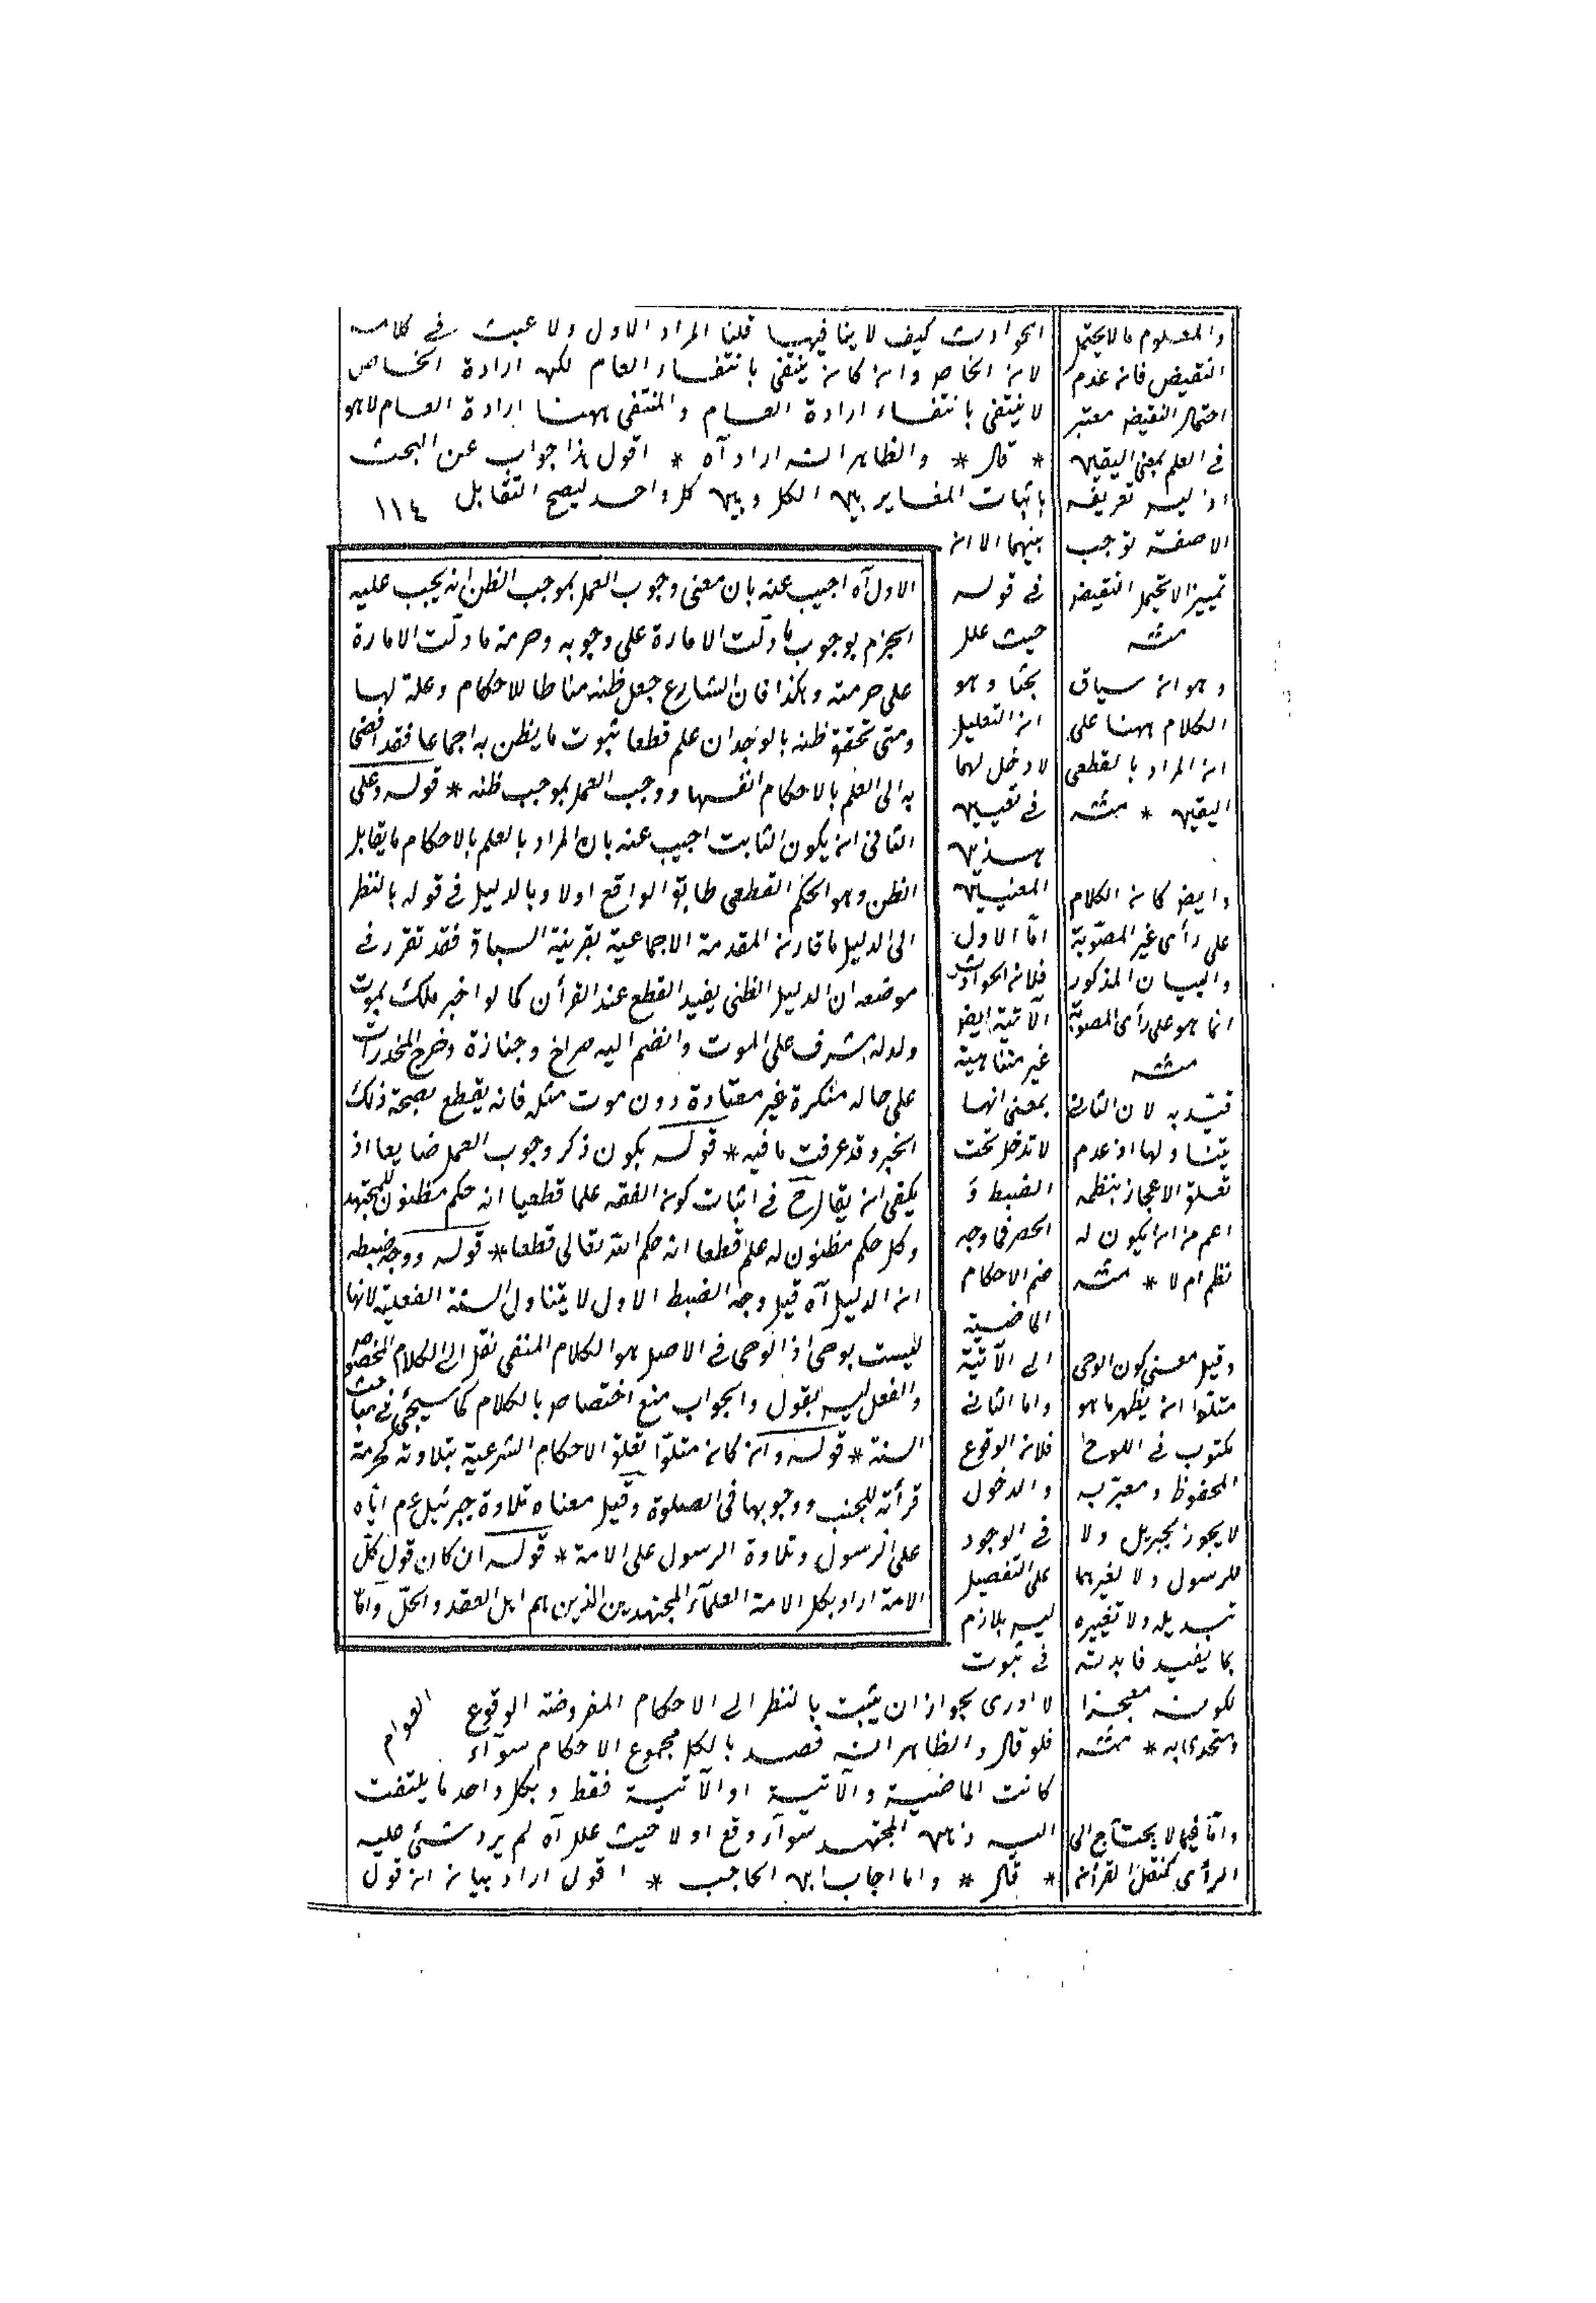 الحوادث كيف لا ينافيها قلنا المراد الاول ولا عبث فى كلامه
لان الخاص وان كان ينتفى بانتفاء العام لكن ارادة الخاص
لا ينتفى بانتفاء ارادة العام والمنتفى ههنا ارادة العام لا هو
* قال * والظاهر انه اراد آه * اقول هذا جواب عن البحث
باثبات المغاير بين الكل وبين كل واحد ليصح التقابل
١١٤
بينهما الا ان
فى قوله
حيث علل
بحثا وهو
ان التعليل
لا دخل لها
فى تعيين
هذين
المعنيين
امّا الاول
فلان الحوادث
الآتية ايضا
غير متناهية
بمعنى انها
لا تدخل تحت
الضبط و
الحصر فما وجه
ضم الاحكام
الماضية
الى الآتية
واما الثانى
فلان الوقوع
والدخول
فى الوجود
على التفصيل
ليس بلازم
فى ثبوت
لا ادرى بجواز ان يثبت بالنظر الى الاحكام المفروضة الوقوع
فلو قال والظاهر انه قصد بالكل مجموع الاحكام سوآء
كانت الماضية والآتية او الآتية فقط وبكل واحد ما يلتفت
اليه ذهن المجتهد سوآء وقع اولا حيث علل آه لم يرد شئ عليه
* قال * واما اجاب ابن الحاجب * اقول اراد بيان ان قول
الاول آه اجيب عنه بان معنى وجوب العمل بموجب الظن انه يجب عليه
الجزم بوجوب ما دلّت الامارة على وجوبه وحرمة ما دلّت الامارة
على حرمته وهكذا فان الشارع جعل ظنه مناطا للاحكام وعلة لها
ومتى تحقق ظنه بالوجدان علم قطعا ثبوت ما يظن به اجماعا فقد افضى
به الى العلم بالاحكام انفسها ووجب العمل بموجب ظنه * قوله وعلى
الثانى ان يكون الثابت اجيب عنه بان المراد بالعلم بالاحكام ما يقابل
الظن وهو الحكم القطعى طابق الواقع اولا وبالدليل فى قوله بالنظر
الى الدليل ما قارن المقدمة الاجماعية بقرينة السباق فقد تقرر فى
موضعه ان الدليل الظنى يفيد القطع عند القرآن كما لو اخبر ملك بموت
ولد له مشرف على الموت وانضم اليه صراخ وجنازة وخرج المخدرات
على حالة منكرة غير معتادة دون موت مثله فانه يقطع بصحة ذلك
الخبر وقد عرفت ما فيه * قوله يكون ذكر وجوب العمل ضايعا اذ
يكفى ان يقال ح فى اثبات كون الفقه علما قطعيا انه حكم مظنون للمجتهد
وكل حكم مظنون له علم قطعا انه حكم الله تعالى قطعا * قوله ووجه ضبطه
ان الدليل آه قيل وجه الضبط الاول لا يتناول السنة الفعلية لانها
ليست بوحى اذ الوحى فى الاصل هو الكلام المنفى نقل الى الكلام المخصوص
والفعل ليس بقول والجواب منع اختصاص بالكلام كما سيجئ فى مباحث
السنة * قوله وان كان متلوّا تعلق الاحكام الشرعية بتلاوته كحرمة
قرأته للجنب ووجوبها فى الصلوة وقيل معناه تلاوة جبرئيل عم اياه
على الرسول وتلاوة الرسول على الامة * قوله ان كان قول كلّ
الامة اراد بكل الامة العلمآء المجتهدين الذين هم اهل العقد والحلّ وامّا
العوام
والمعلوم ما لا يحتمل
النقيض فان عدم
احتمال النقيض معتبر
فى العلم بمعنى اليقين
اذ ليس تعريفه
الا صفة توجب
تمييزا لا يحتمل النقيض
منه
وهو ان سياق
الكلام ههنا على
ان المراد بالقطعى
اليقين * منه
وايضا كان الكلام
على رأى غير المصوّبة
والبيان المذكور
انما هو على رأى المصوّبة
منه
قيّد به لان الثانى
يتناولها اذ عدم
تعلق الاعجاز بنظمه
اعم من ان يكون له
نظم ام لا * منه
وقيل معنى كون الوحى
متلوا ان يظهر ما هو
مكتوب فى اللوح
المحفوظ ومعبّر به
لا يجوز لجبريل ولا
للرسول ولا لغيرهما
تبديله ولا تغييره
بما يفيد فائدته
لكونه معجزا
ومتحدى به * منه
وامّا فيما لا يحتاج الى
الرأى كنقل القرآن